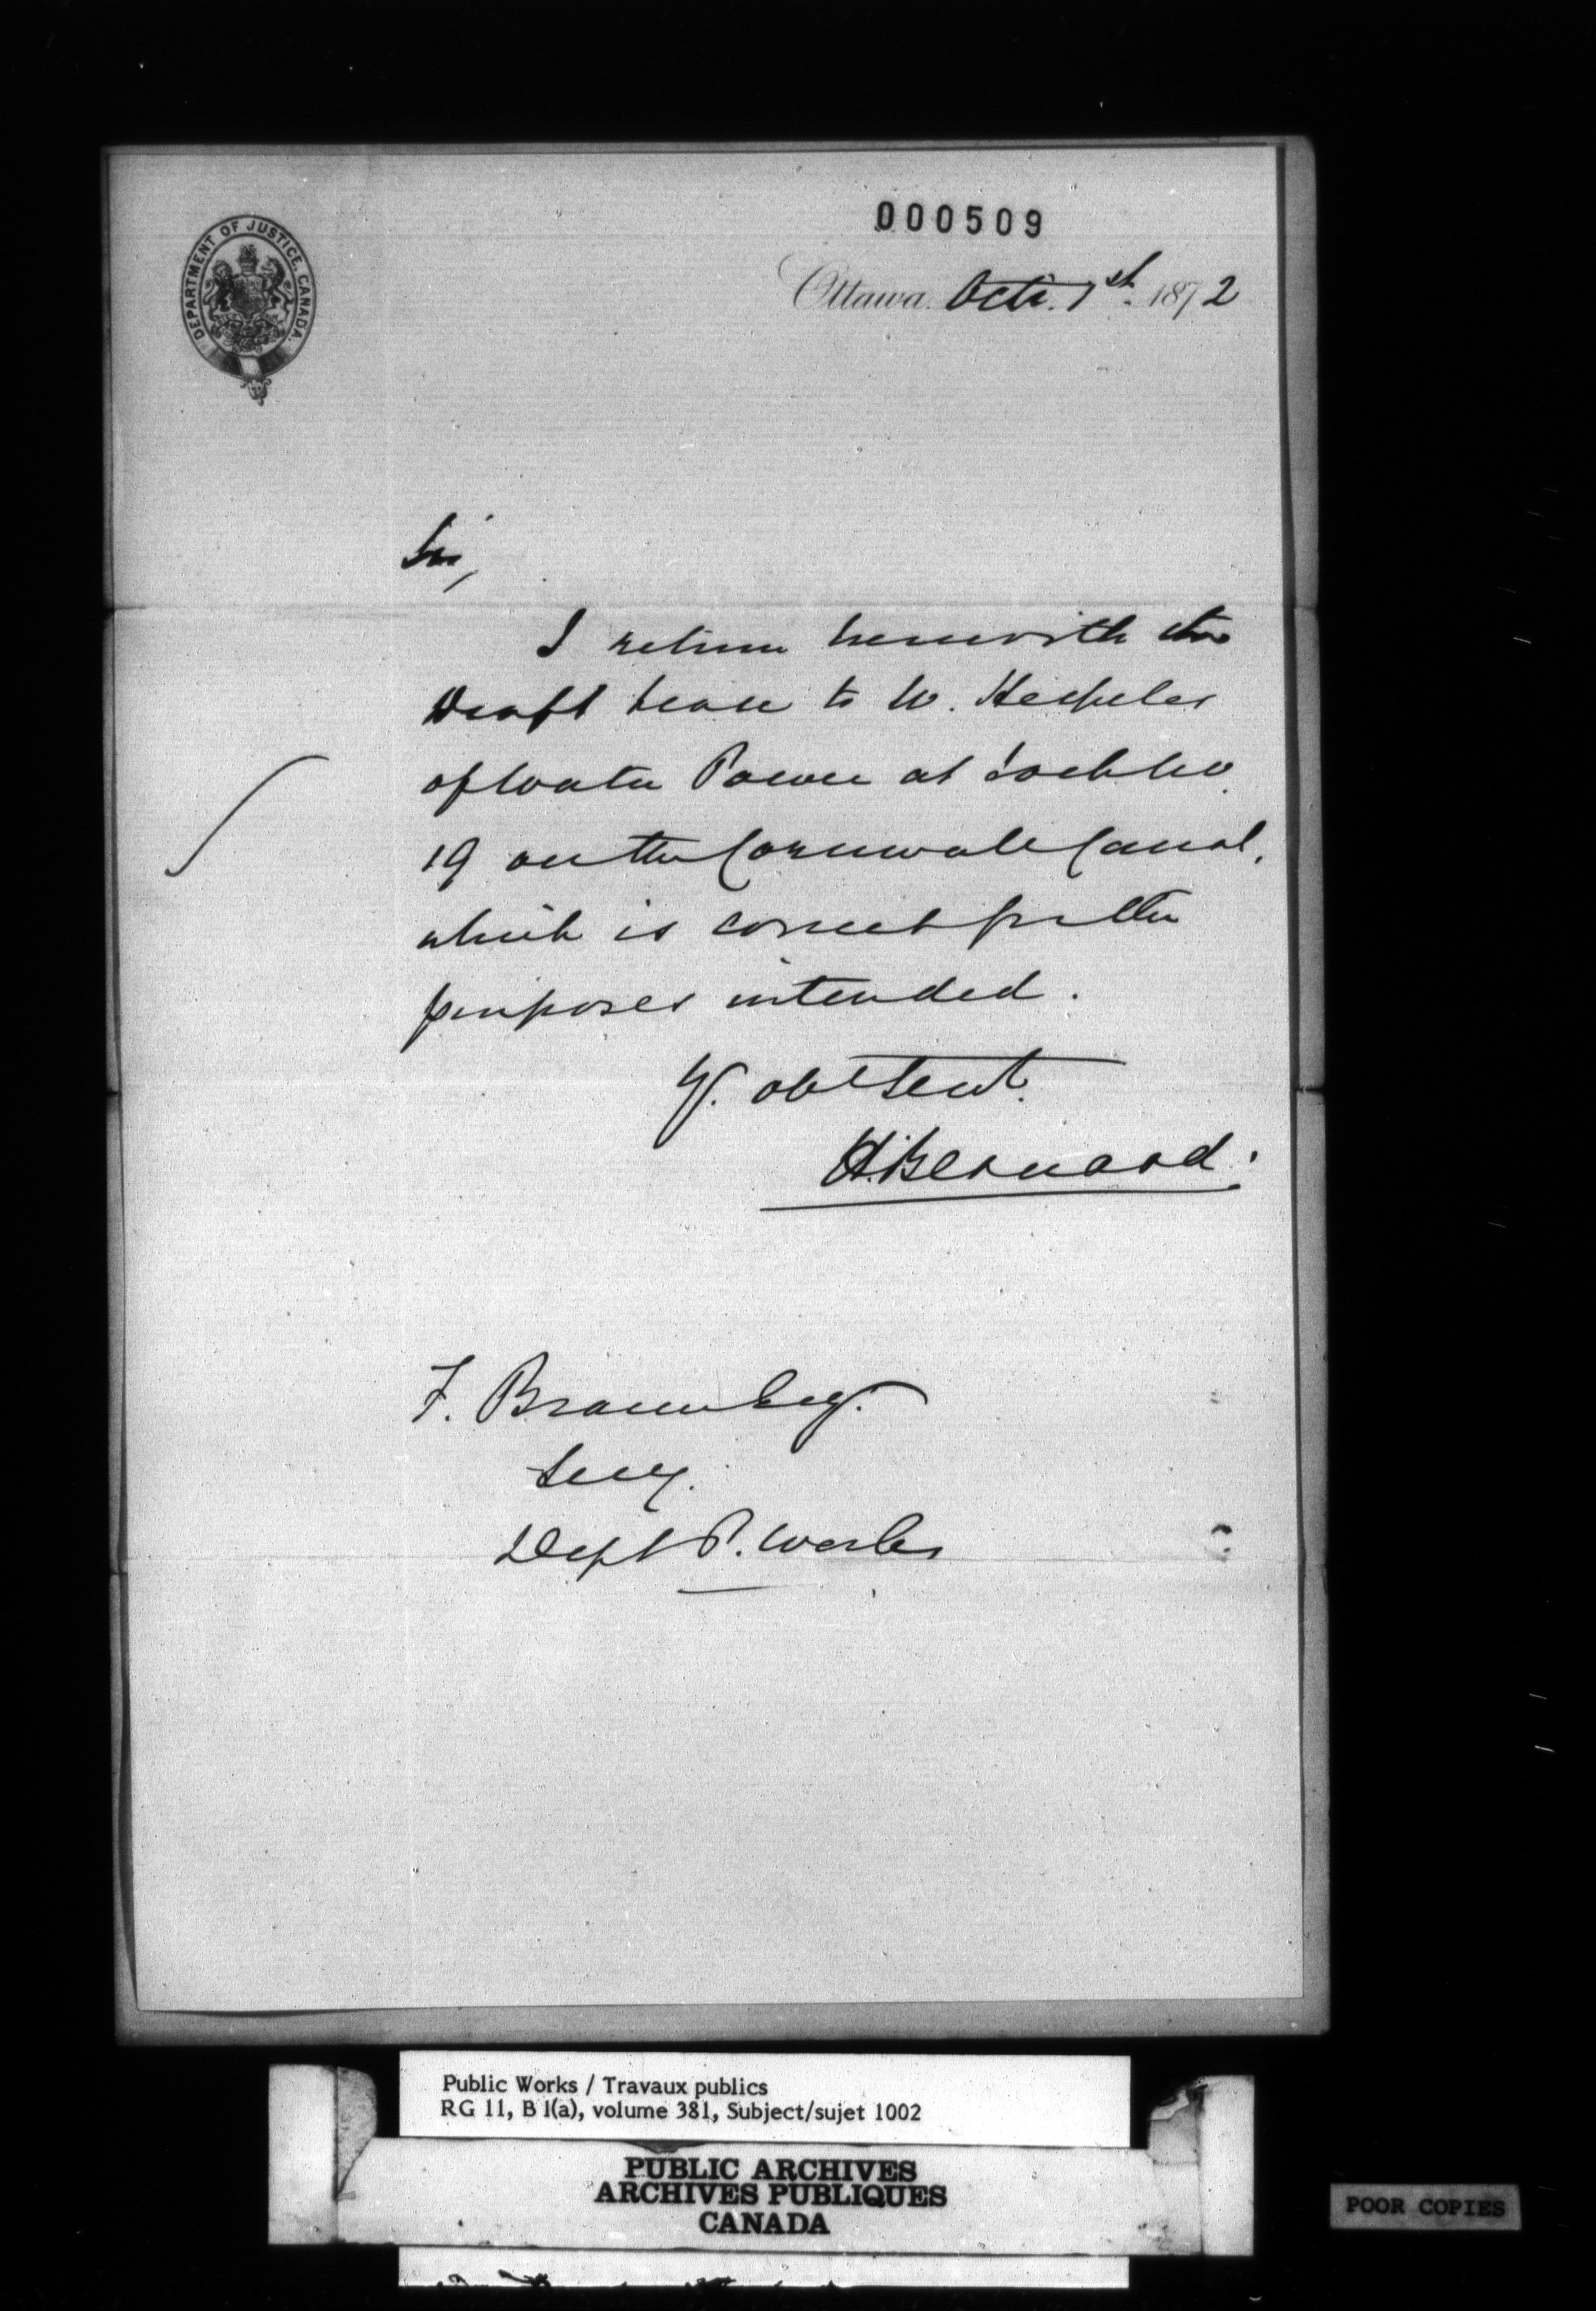 000509
DEPARTMENT OF JUSTICE. CANADA.
Ottawa. Octr. 1st. 1872
Sir,
I return herewith the
Draft Lease to W. Hespeler
of Water Power at Lock No.
19 on the Cornwall Canal,
which is correct for the
purposes intended.
Yr. obt Servt.
H. Bernard.
F. Braun Esq.
Secy.
Dept P. Works
Public Works / Travaux publics
RG 11, B 1(a), volume 381, Subject/sujet 1002
PUBLIC ARCHIVES
ARCHIVES PUBLIQUES
CANADA
POOR COPIES